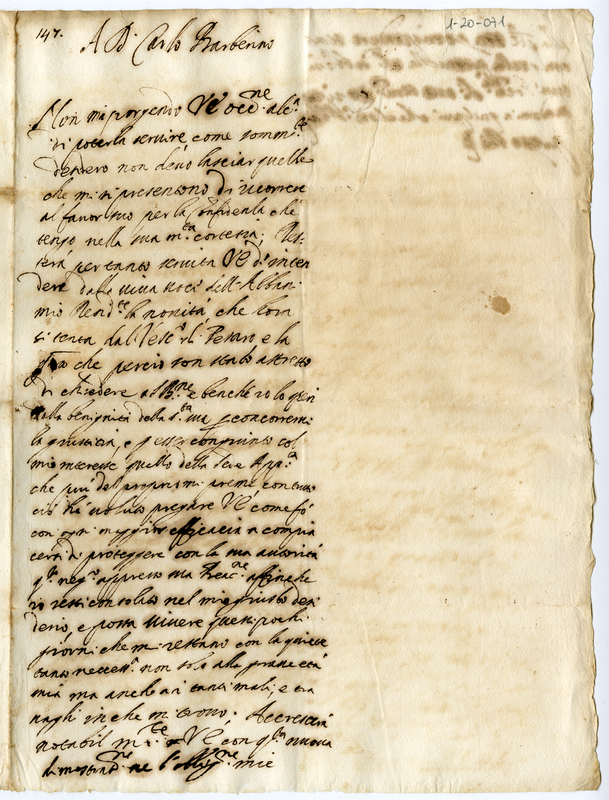 147.
1-20-071
A D. Carlo Barberino
Non mi porgendo VE occ.ne alc.a
di poterla servire, come somm.te
desidero non devo lasciar quelle
che mi si presentono di ricorrere
al favor suo per la confidenza che
tengo nella sua m.ta cortesia; Res-
terà per tanto servita VE d'inten
dere dalla viva voce dell'Abbate
mio la novità, che ...
tenta dal Vesc.o di Pesaro e la
che perciò son stato astretto
di chiedere a e benche io lo speri
dalla benignità della S.tà sua concorrervi
la giustitia, e esser congiunto col
mio interesse quello della Sede App.ca
che più del proprio mi preme con tutto
ciò hà voluto pregare VE come fò
con ogni maggior efficacia a compia
cersi di proteggere con la sua autorità
q.to neg.o appresso sua affinche
io resti consolato nel mio giusto desi
derio, e possa vivere questi pochi
giorni che mi restano con la quiete
tanto necess.a non solo alla grave età
mia ma anche ai tanti mali, e tra
vagli in che mi trovo. Accrescerà
notabil m.te VE con q.ta nuova
dimostrat.ne le oblig.ne mie